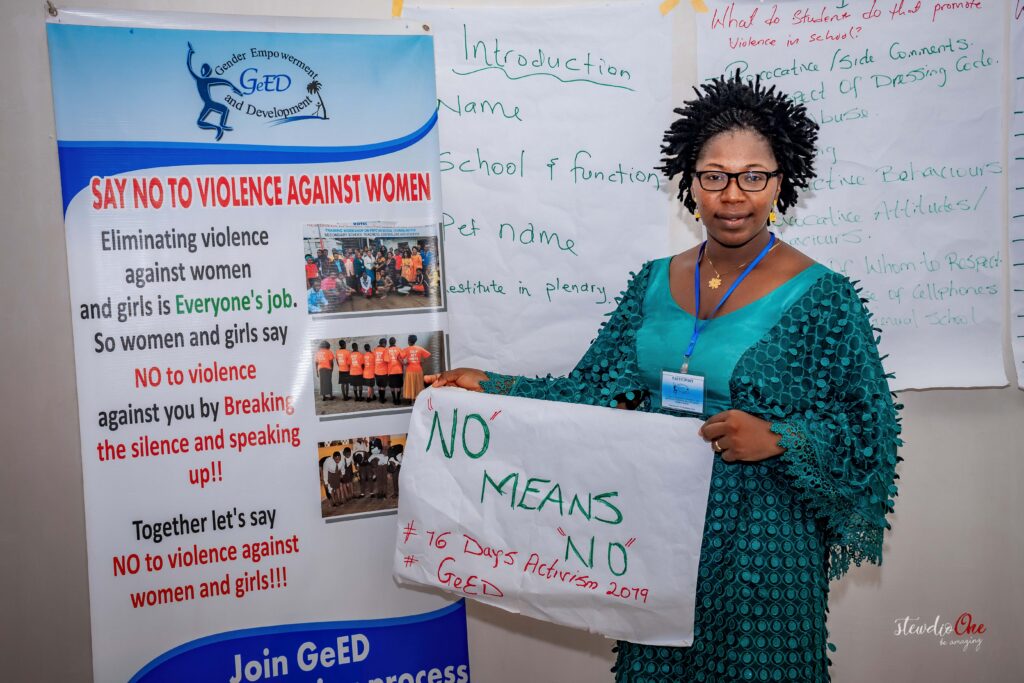 Gender Empowerment
GeED
and Development
SAY NO TO VIOLENCE AGAINST WOMEN
Eliminating violence
against women
and girls is Everyone's job.
So women and girls say
NO to violence
against you by Breaking
the silence and speaking
up!!
Together let's say
NO to violence against
women and girls!!!
Join GeED
process
Introduction
Name
School & function
Pet name
Restitute in plenary.
What do Students do that promote
Violence in school?
Provocative /Side Comments.
Of Dressing Code.
Behaviours
Attitudes/
Of Whom to Respect
of Cellphones
School
"NO"
MEANS
"NO"
# 16 Days Activism 2019
# GeED
stewdioOne
be amazing